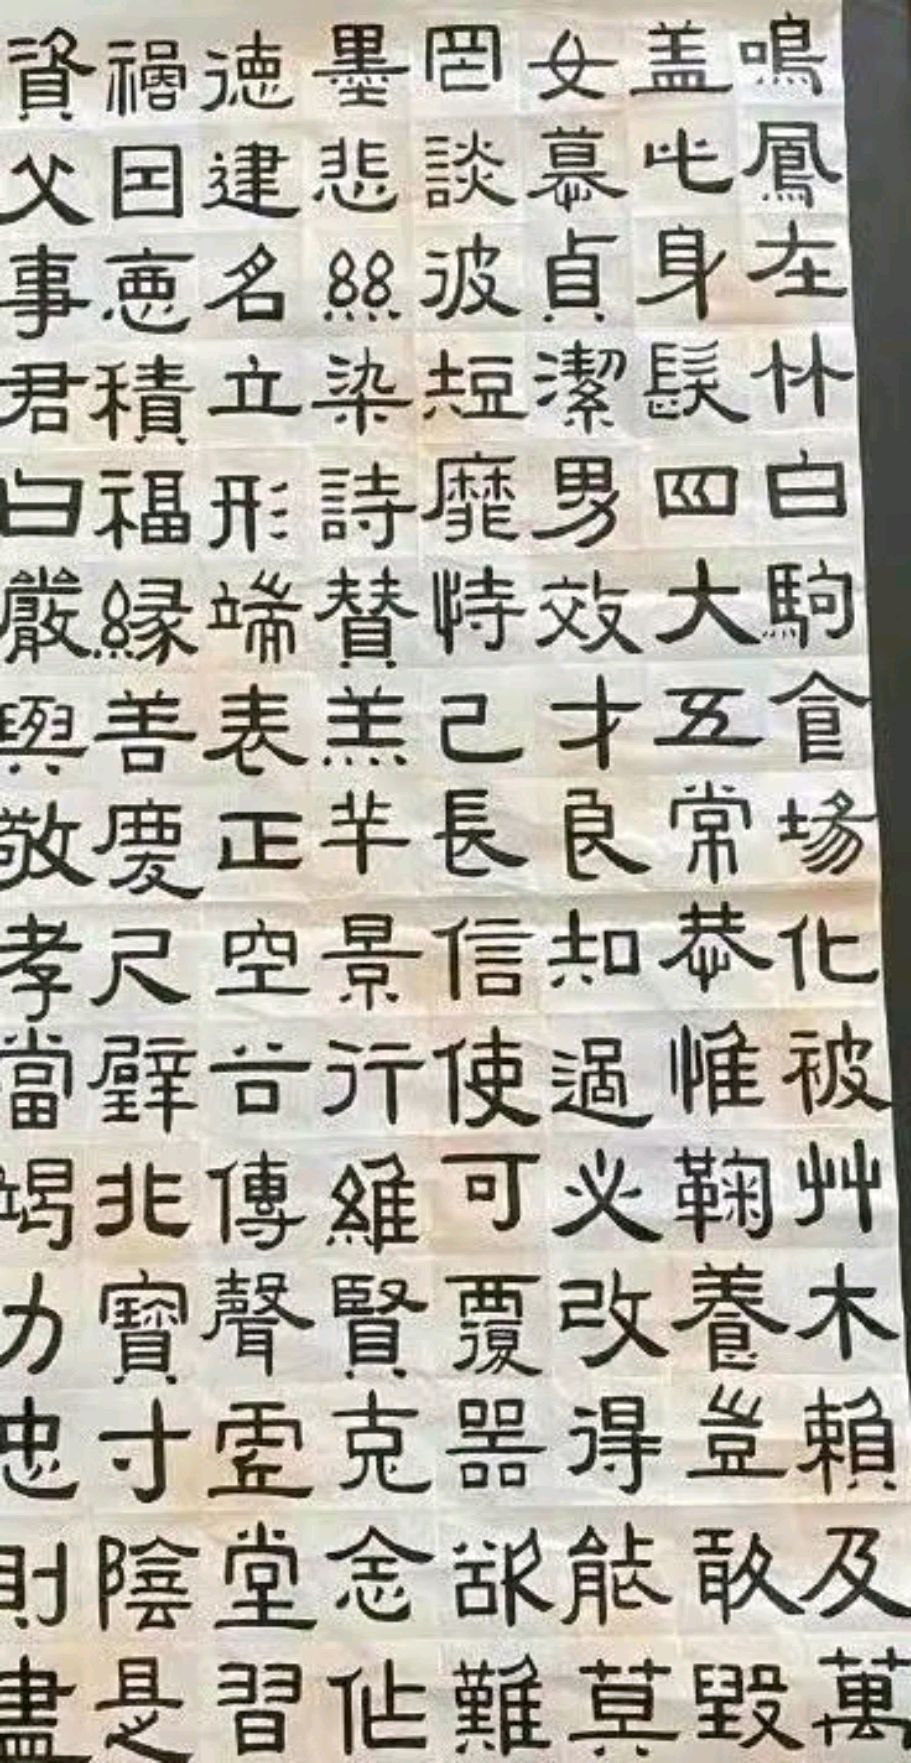 鳴鳳在竹白駒食場化被艸木賴及萬
盖此身髮四大五常恭惟鞠養豈敢毀
女慕貞潔男效才良知過必改得能莫
罔談彼短靡恃己長信使可覆器欲難
墨悲絲染詩賛羔羊景行維賢克念作
徳建名立形端表正空谷傳聲虛堂習
禍因惡積福縁善慶尺璧非寶寸陰是
資父事君曰嚴與敬孝當竭力忠則盡